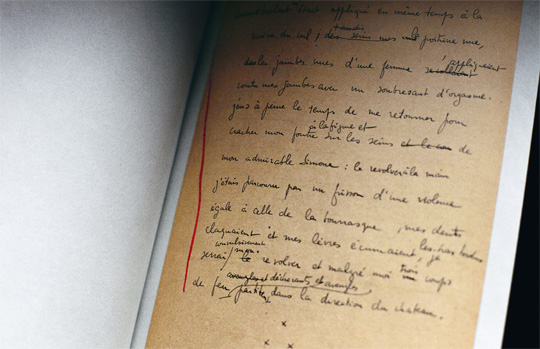 appliqué en même temps à la
du cul ; des seins mes poitrine nue,
jambes nues d'une femme s'appliquaient
contre mes jambes avec un soubresaut d'orgasme.
J'eus à peine le temps de me retourner pour
à la figure et
cracher mon foutre sur les seins et le con de
mon admirable Simone : le revolver à la main
j'étais parcouru par un frisson d'une violence
égale à celle de la bourrasque, mes dents
claquaient et mes lèvres écumaient, les bras tordus je
convulsivement mon trois
serrai le revolver et malgré moi coups
aveugles et déchirants et aveugles
de feu partirent dans la direction du chateau.
x
x x